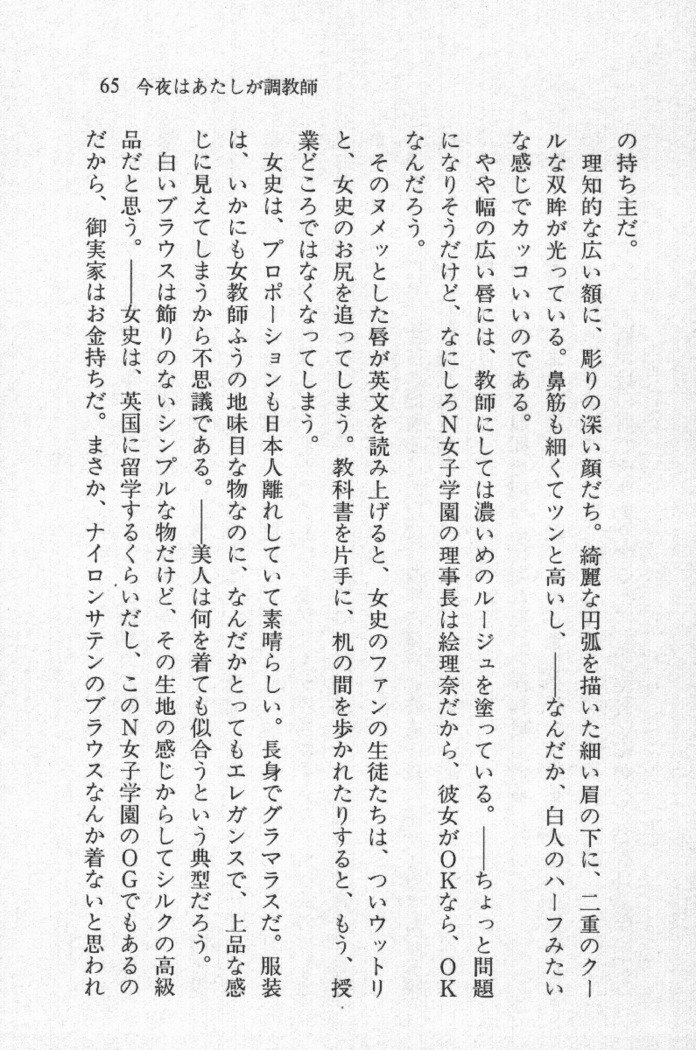 65　今夜はあたしが調教師
の持ち主だ。
　理知的な広い額に、彫りの深い顔だち。綺麗な円弧を描いた細い眉の下に、二重のクー
ルな双眸が光っている。鼻筋も細くてツンと高いし、――なんだか、白人のハーフみたい
な感じでカッコいいのである。
　やや幅の広い唇には、教師にしては濃いめのルージュを塗っている。――ちょっと問題
になりそうだけど、なにしろＮ女子学園の理事長は絵理奈だから、彼女がＯＫなら、ＯＫ
なんだろう。
　そのヌメッとした唇が英文を読み上げると、女史のファンの生徒たちは、ついウットリ
と、女史のお尻を追ってしまう。教科書を片手に、机の間を歩かれたりすると、もう、授
業どころではなくなってしまう。
　女史は、プロポーションも日本人離れしていて素晴らしい。長身でグラマラスだ。服装
は、いかにも女教師ふうの地味目な物なのに、なんだかとってもエレガンスで、上品な感
じに見えてしまうから不思議である。――美人は何を着ても似合うという典型だろう。
　白いブラウスは飾りのないシンプルな物だけど、その生地の感じからしてシルクの高級
品だと思う。――女史は、英国に留学するくらいだし、このＮ女子学園のＯＧでもあるの
だから、御実家はお金持ちだ。まさか、ナイロンサテンのブラウスなんか着ないと思われ